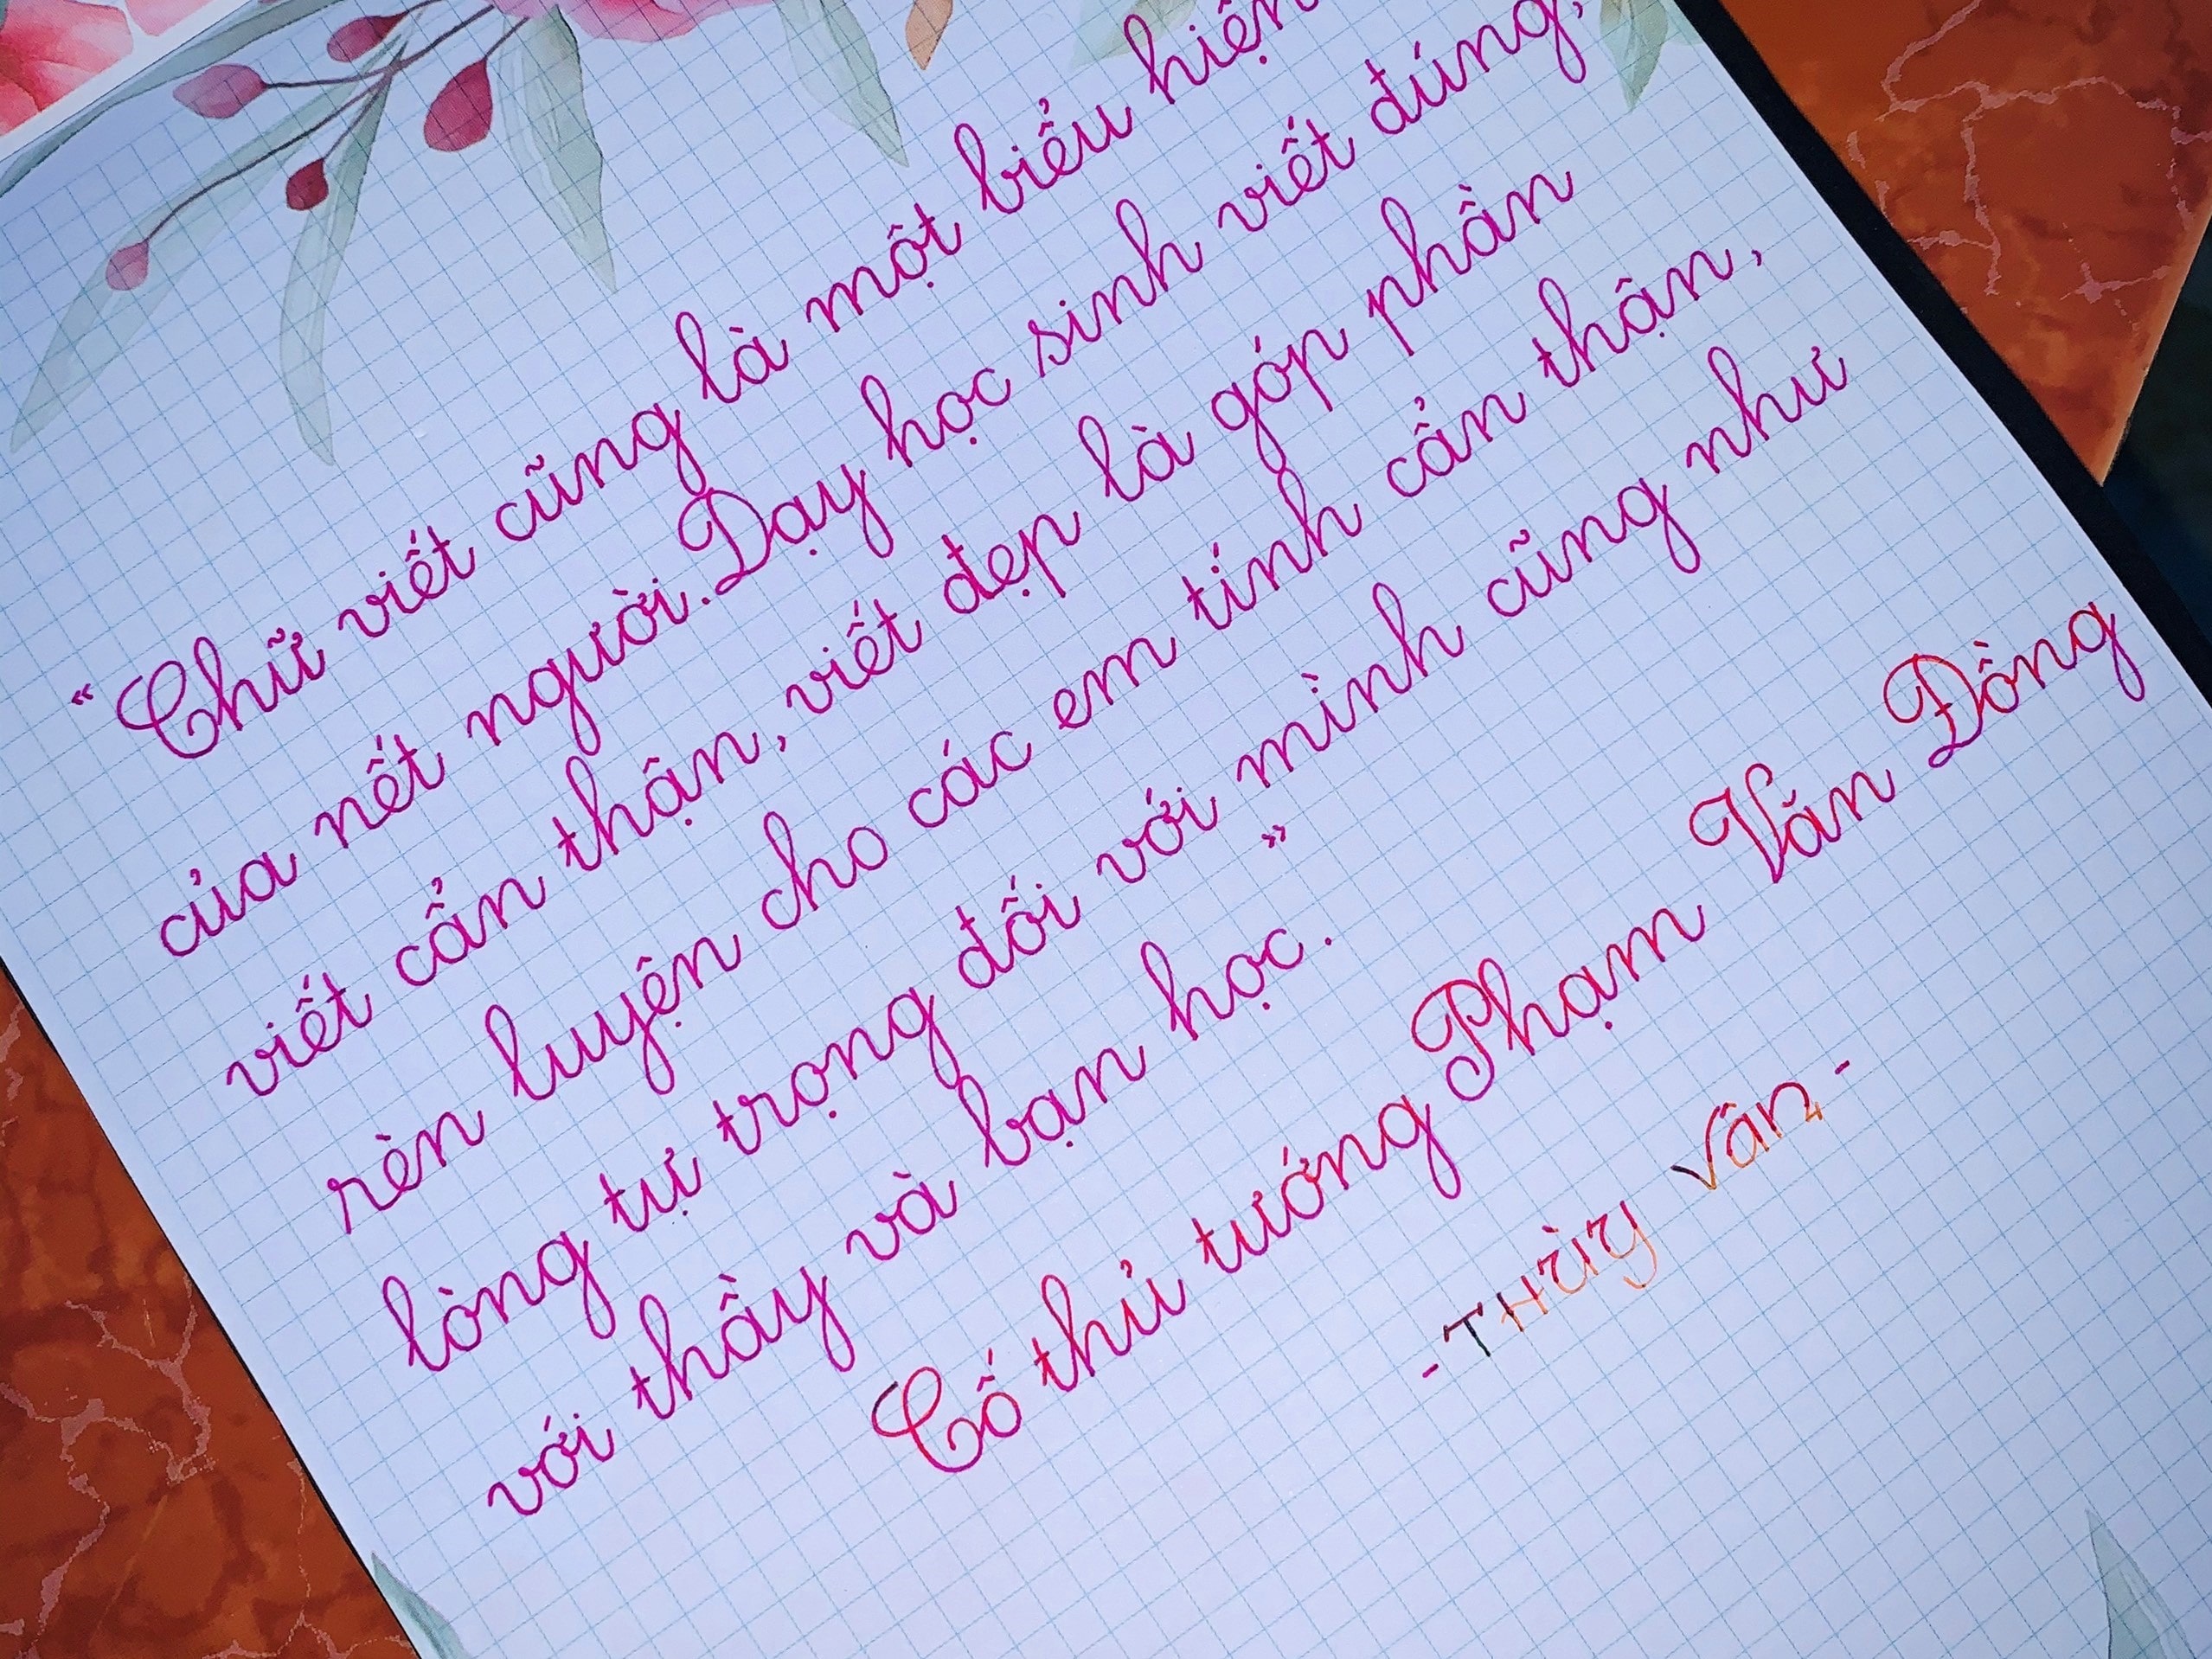 "Chữ viết cũng là một biểu hiện
của nết người. Dạy học sinh viết đúng,
viết cẩn thận, viết đẹp là góp phần
rèn luyện cho các em tính cẩn thận,
lòng tự trọng đối với mình cũng như
với thầy và bạn học."
Cố thủ tướng Phạm Văn Đồng
-THÙY Vân-